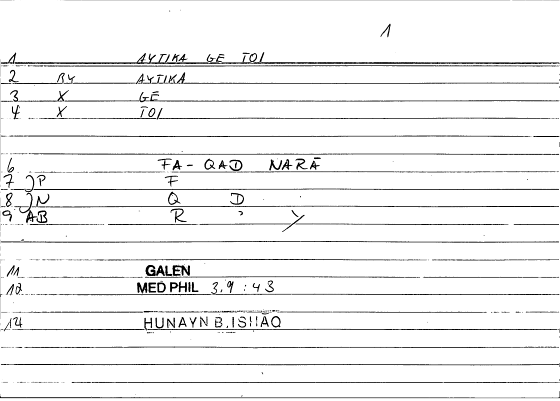 1
1 AYTIKA GE TOI
2 BY AYTIKA
3 X GE
4 X TOI
6 FA-QAD NARĀ
7 )P F
8 )N Q D
9 AB R ʾ Y
11 GALEN
12 MED PHIL 3,9 : 43
14 HUNAYN B.ISHAQ